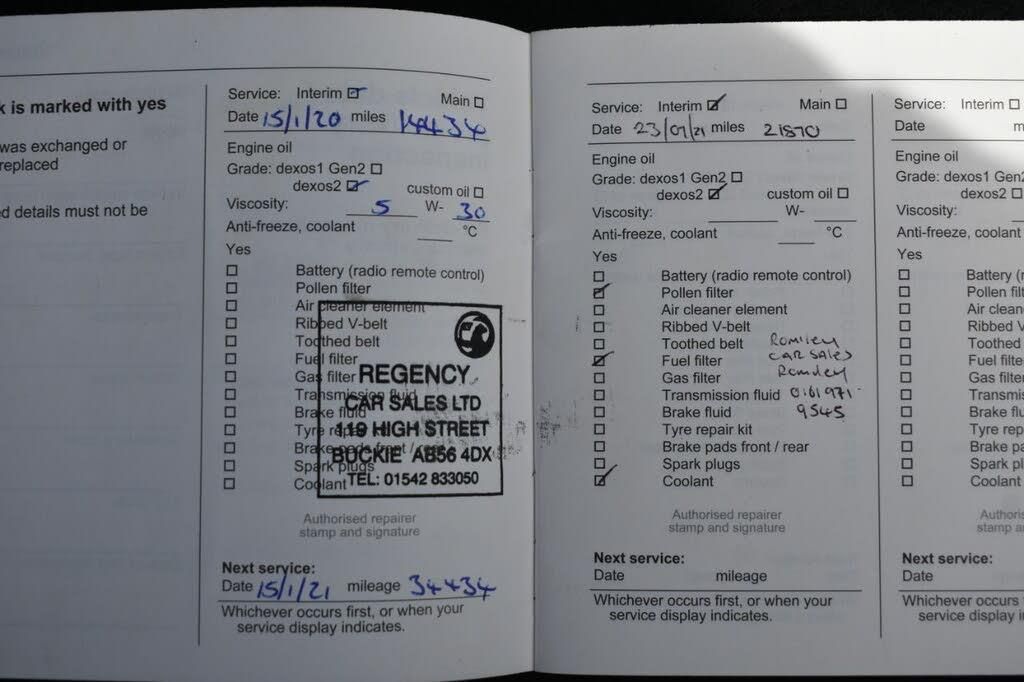 k is marked with yes
was exchanged or
replaced
d details must not be
Service: Interim ☑ Main ☐
Date 15/1/20 miles 14434
Engine oil
Grade: dexos1 Gen2 ☐
dexos2 ☑ custom oil ☐
Viscosity: 5 W- 30
Anti-freeze, coolant ____ °C
Yes
☐ Battery (radio remote control)
☐ Pollen filter
☐ Air cleaner element
☐ Ribbed V-belt
☐ Toothed belt
☐ Fuel filter
☐ Gas filter
☐ Transmission fluid
☐ Brake fluid
☐ Tyre repair kit
☐ Brake pads front / rear
☐ Spark plugs
☐ Coolant
REGENCY
CAR SALES LTD
119 HIGH STREET
BUCKIE AB56 4DX
TEL: 01542 833050
Authorised repairer
stamp and signature
Next service:
Date 15/1/21 mileage 34434
Whichever occurs first, or when your
service display indicates.
Service: Interim ☑ Main ☐
Date 23/07/21 miles 21870
Engine oil
Grade: dexos1 Gen2 ☐
dexos2 ☑ custom oil ☐
Viscosity: ____ W- ____
Anti-freeze, coolant ____ °C
Yes
☐ Battery (radio remote control)
☑ Pollen filter
☐ Air cleaner element
☐ Ribbed V-belt
☐ Toothed belt
☑ Fuel filter
☐ Gas filter
☐ Transmission fluid
☐ Brake fluid
☐ Tyre repair kit
☐ Brake pads front / rear
☐ Spark plugs
☑ Coolant
Romiley
CAR SALES
Romiley
0161 971
9545
Authorised repairer
stamp and signature
Next service:
Date mileage
Whichever occurs first, or when your
service display indicates.
Service: Interim ☐
Date m
Engine oil
Grade: dexos1 Gen2
dexos2 ☐
Viscosity:
Anti-freeze, coolant
Yes
☐ Battery (r
☐ Pollen filt
☐ Air clean
☐ Ribbed V
☐ Toothed
☐ Fuel filte
☐ Gas filter
☐ Transmis
☐ Brake flu
☐ Tyre rep
☐ Brake pa
☐ Spark pl
☐ Coolant
Authoris
stamp a
Next service:
Date
Whichever occurs
service displ